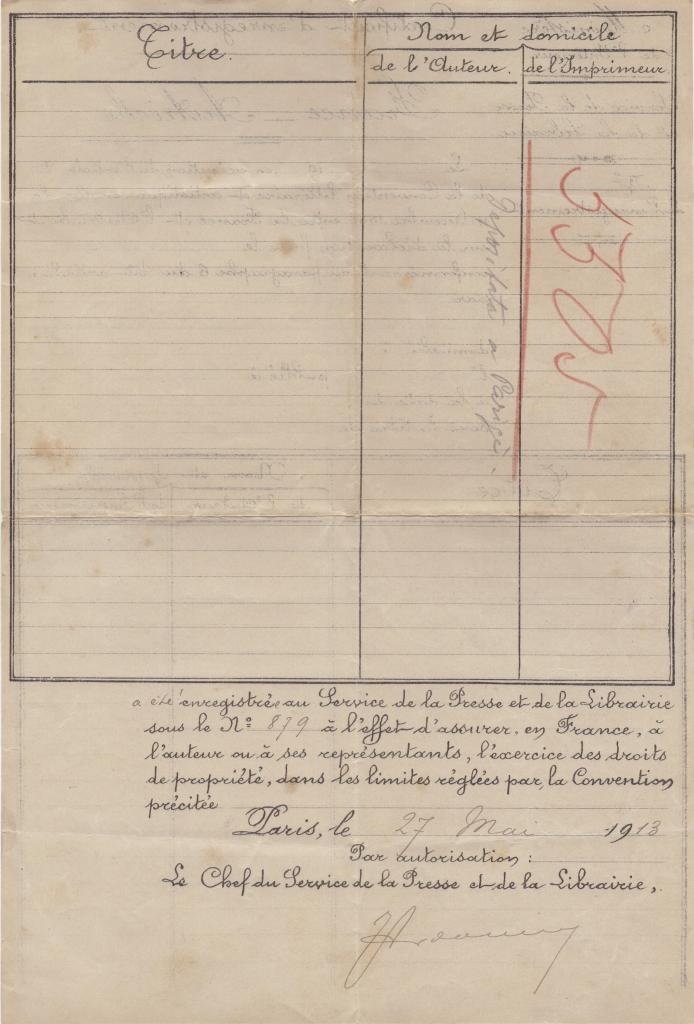 Titre.
Nom et domicile
de l'Auteur.
de l'Imprimeur
Depositata a Parigi.
5305
a été enregistrée au Service de la Presse et de la Librairie
sous le Nº 879 à l'effet d'assurer, en France, à
l'auteur ou à ses représentants, l'éxercice des droits
de propriété, dans les limites réglées par la Convention
précitée
Paris, le 27 Mai 1913
Par autorisation :
Le Chef du Service de la Presse et de la Librairie,